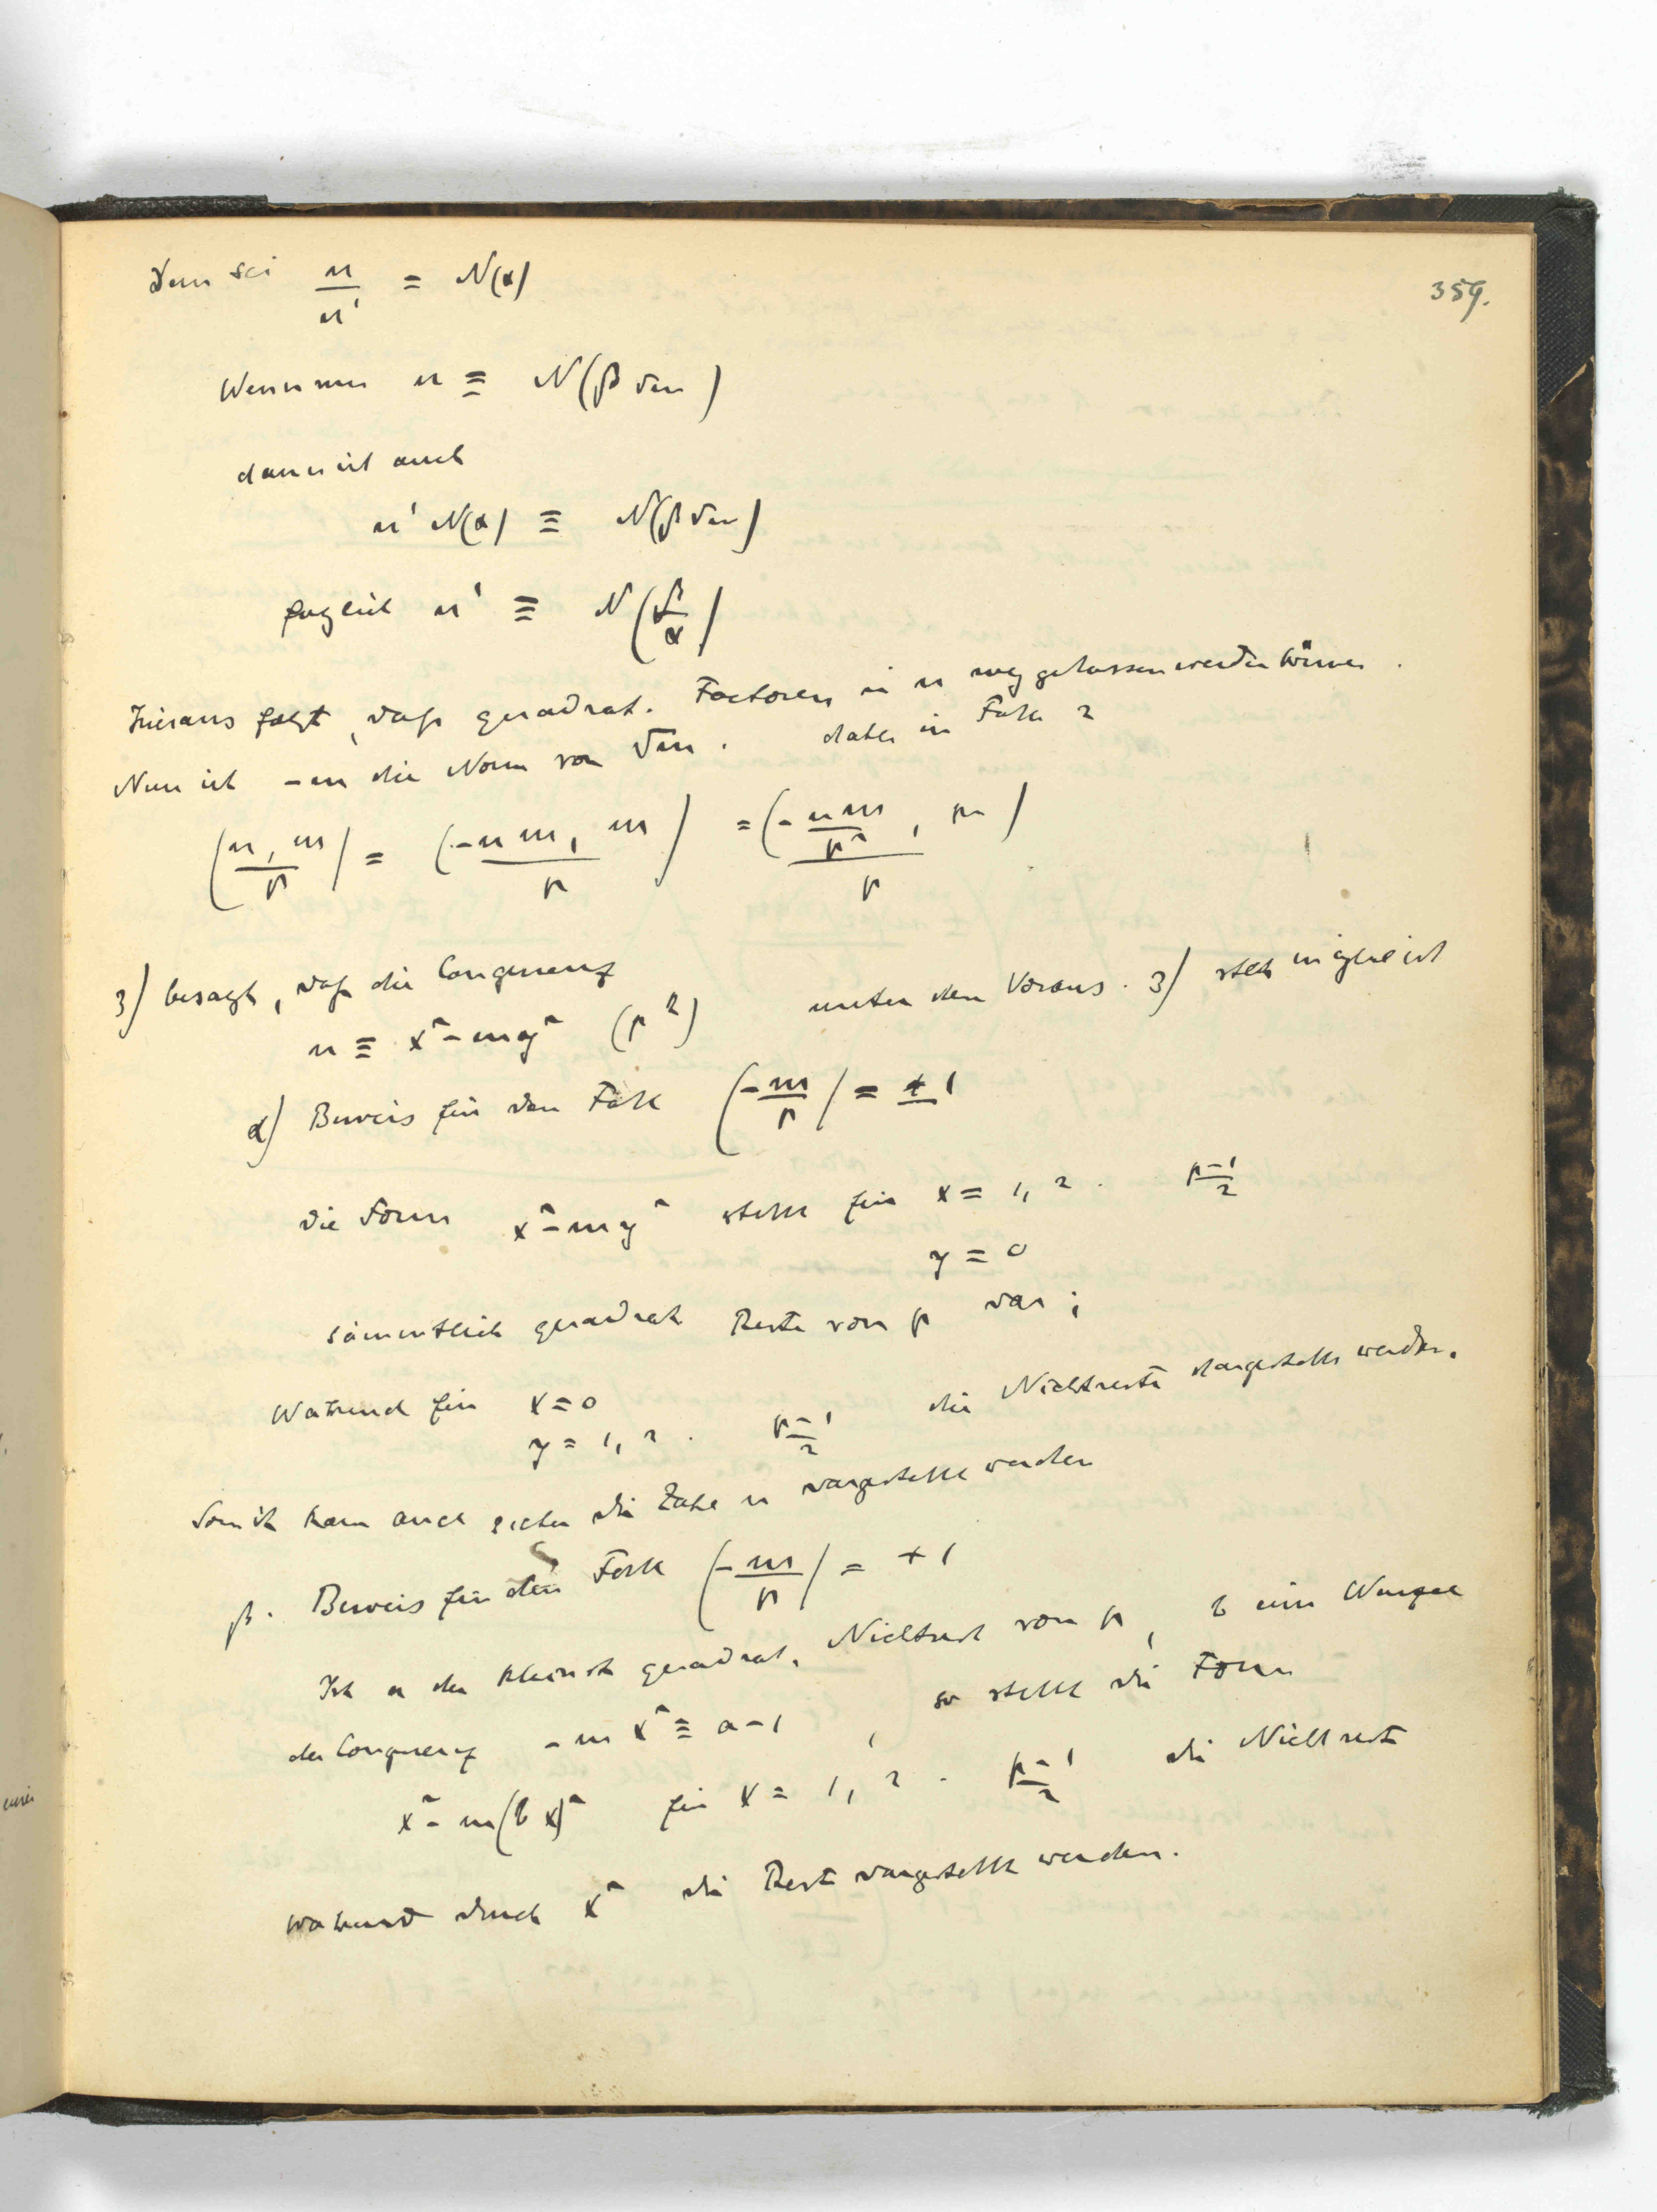 359.
Denn sei n/n' = N(α)
Wenn nun n ≡ N(β √m)
dann ist auch
n' N(α) ≡ N(β √m)
folglich n' ≡ N(β/α)
Hieraus folgt, daß quadrat. Factoren in n weggelassen werden können.
Nun ist −m die Norm von √m. daher in Falle 2
(n, m / p) = (−n m, m / p) = (−n m/p², m / p)
3) besagt, daß die Congruenz
n ≡ x² − my² (p^k) unter den Voraus. 3) stets möglich ist
α) Beweis für den Fall (−m/p) = ± 1
die Form x² − my² stellt für x = 1, 2 . . p−1/2
y = 0
sämmtlich quadrat Reste von p dar;
Während für x = 0
y = 1, 2 . p−1/2 die Nichtreste dargestellt werden.
Somit kann auch sicher die Zahl n dargestellt werden
β. Beweis für den Fall (−m/p) = + 1
Ist a der kleinste quadrat. Nichtrest von p, b eine Wurzel
der Congruenz − m x² ≡ a − 1, so stellt die Form
x² − m(b x)² für x = 1, 2 . p−1/2 die Nichtreste
während durch x² die Reste dargestellt werden.